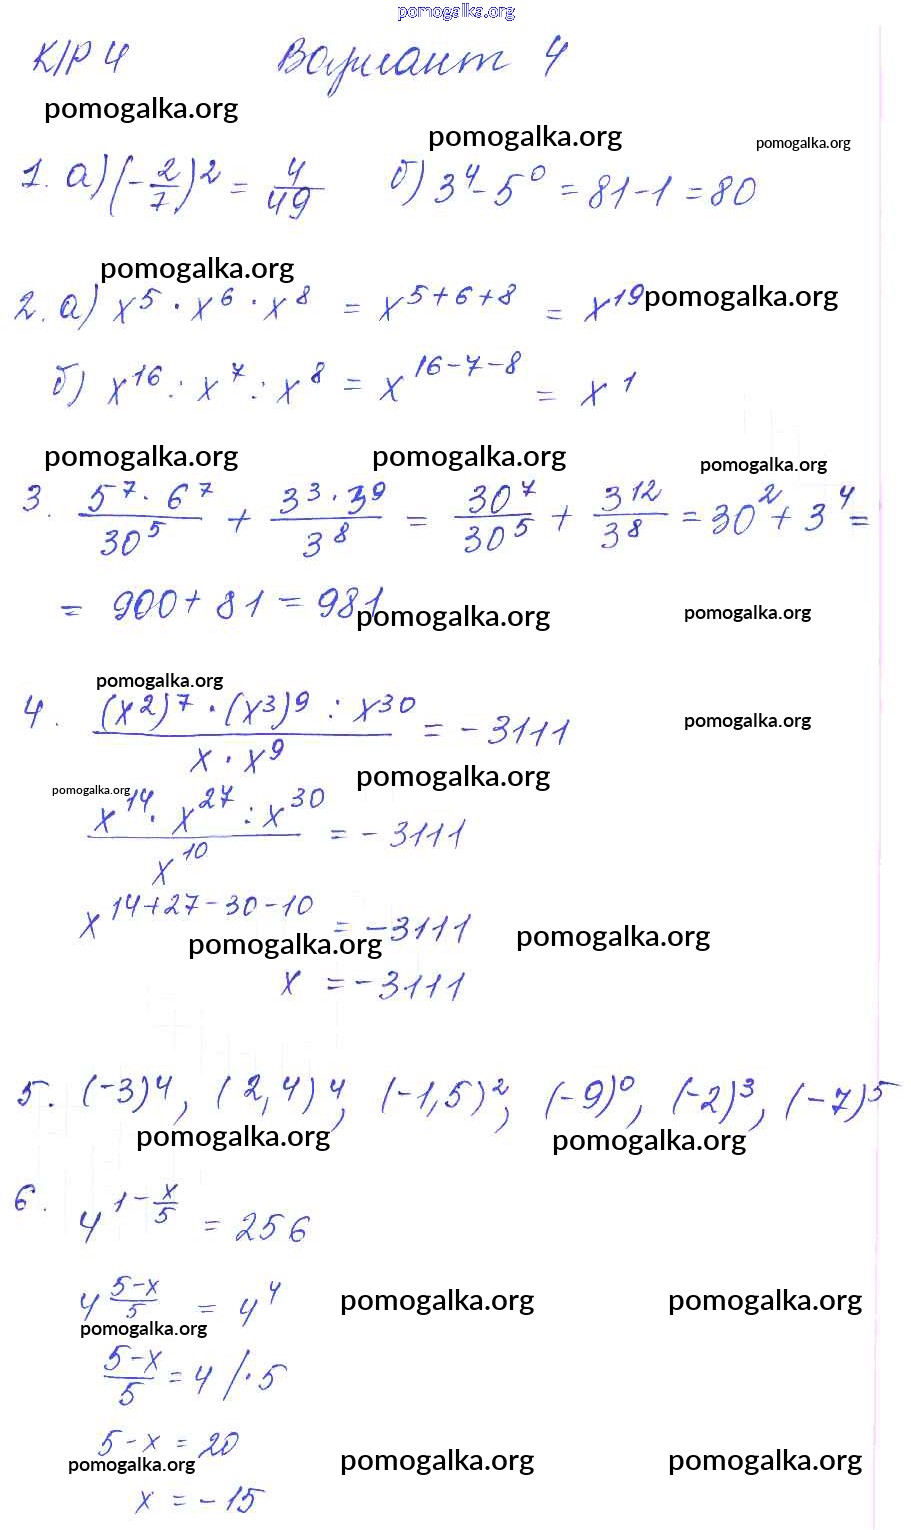 pomogalka.org
К/Р 4 Вариант 4
pomogalka.org
pomogalka.org pomogalka.org
1. а) (-2/7)^2 = 4/49 б) 3^4 - 5^0 = 81 - 1 = 80
pomogalka.org
2. а) x^5 · x^6 · x^8 = x^(5+6+8) = x^19 pomogalka.org
б) x^16 : x^7 : x^8 = x^(16-7-8) = x^1
pomogalka.org pomogalka.org pomogalka.org
3. (5^7 · 6^7)/30^5 + (3^3 · 3^9)/3^8 = 30^7/30^5 + 3^12/3^8 = 30^2 + 3^4 =
= 900 + 81 = 981
pomogalka.org pomogalka.org
pomogalka.org
4. ((x^2)^7 · (x^3)^9 : x^30)/(x · x^9) = -3111
pomogalka.org
pomogalka.org
pomogalka.org
(x^14 · x^27 : x^30)/x^10 = -3111
x^(14+27-30-10) = -3111
pomogalka.org pomogalka.org
x = -3111
5. (-3)^4, (2,4)^4, (-1,5)^2, (-9)^0, (-2)^3, (-7)^5
pomogalka.org pomogalka.org
6. 4^(1-x/5) = 256
4^((5-x)/5) = 4^4
pomogalka.org pomogalka.org
pomogalka.org
(5-x)/5 = 4 /·5
5-x = 20
pomogalka.org pomogalka.org pomogalka.org
x = -15